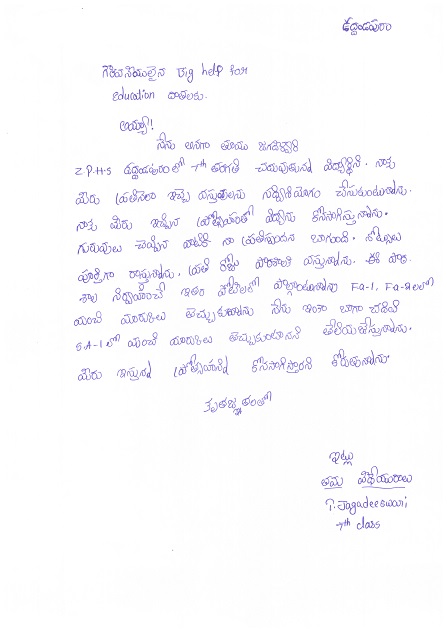 ఉద్దండపురం
గౌరవనీయులైన Big help for
education దాతలకు.
అయ్యా!
నేను అనగా తూము జగదీశ్వరి
Z.P.H.S ఉద్దండపురం లో 7th తరగతి చదువుతున్న విద్యార్థిని. నాకు
మీరు ప్రతినెలా ఇచ్చే వస్తువులను సద్వినియోగం చేసుకుంటున్నాను.
నాకు మీరు ఇచ్చిన ప్రోత్సాహంతో విద్యను కొనసాగిస్తున్నాను.
గురువులు చెప్పిన వాటికి నా ప్రతిస్పందన బాగుంది. నోట్సులు
పూర్తిగా రాస్తున్నాను. ప్రతి రోజు పాఠశాలకి వస్తున్నాను. ఈ పాఠ-
శాల నిర్వహించే ఇతర పోటీలలో పాల్గొంటున్నాను Fa-1, Fa-2 లలో
మంచి మార్కులు తెచ్చుకున్నాను నేను ఇంకా బాగా చదివి
S.A-1 లో మంచి మార్కులు తెచ్చుకుంటానని తెలియజేస్తున్నాను.
మీరు ఇస్తున్న ప్రోత్సాహాన్ని కొనసాగిస్తారని కోరుతున్నాను.
కృతజ్ఞతలతో
ఇట్లు
తమ విధేయురాలు
T. Jagadeeswari
7th class